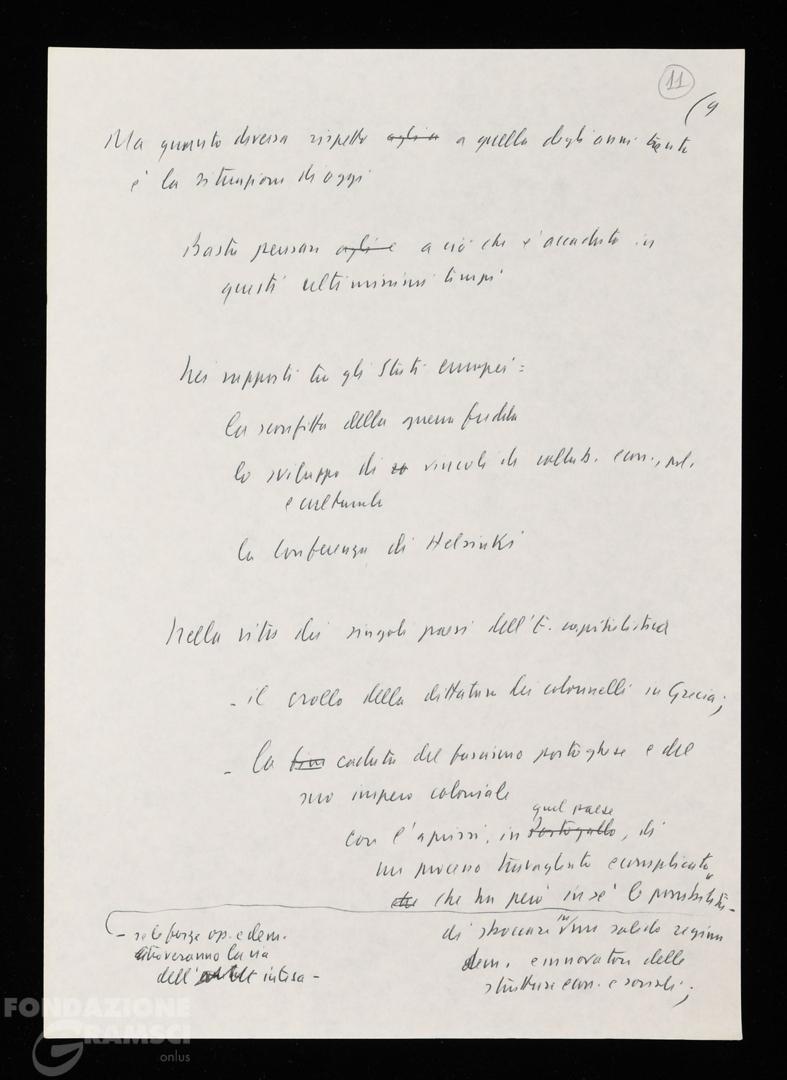 11
(9
Ma quanto diversa rispetto aglia a quella degli anni trenta
e' la situazione di oggi
Basta pensare agli e a ciò che e' accaduto in
questi ultimissimi tempi
Nei rapporti tra gli Stati europei:
la sconfitta della guerra fredda
lo sviluppo di vincoli di collab. econ., pol.
e culturale
la Conferenza di Helsinki
Nella vita dei singoli paesi dell'E. capitalistica
- il crollo della dittatura dei colonnelli in Grecia;
- la fine caduta del fascismo portoghese e del
suo impero coloniale
quel paese
con l'aprirsi, in Portogallo, di
un processo travagliato e complicato
che che ha però in sé la possibilità -
di sboccare in un solido regime
dem. e innovatore delle
strutture econ. e sociali;
- se le forze op. e dem.
troveranno la via
dell' intesa -
FONDAZIONE
GRAMSCI
onlus